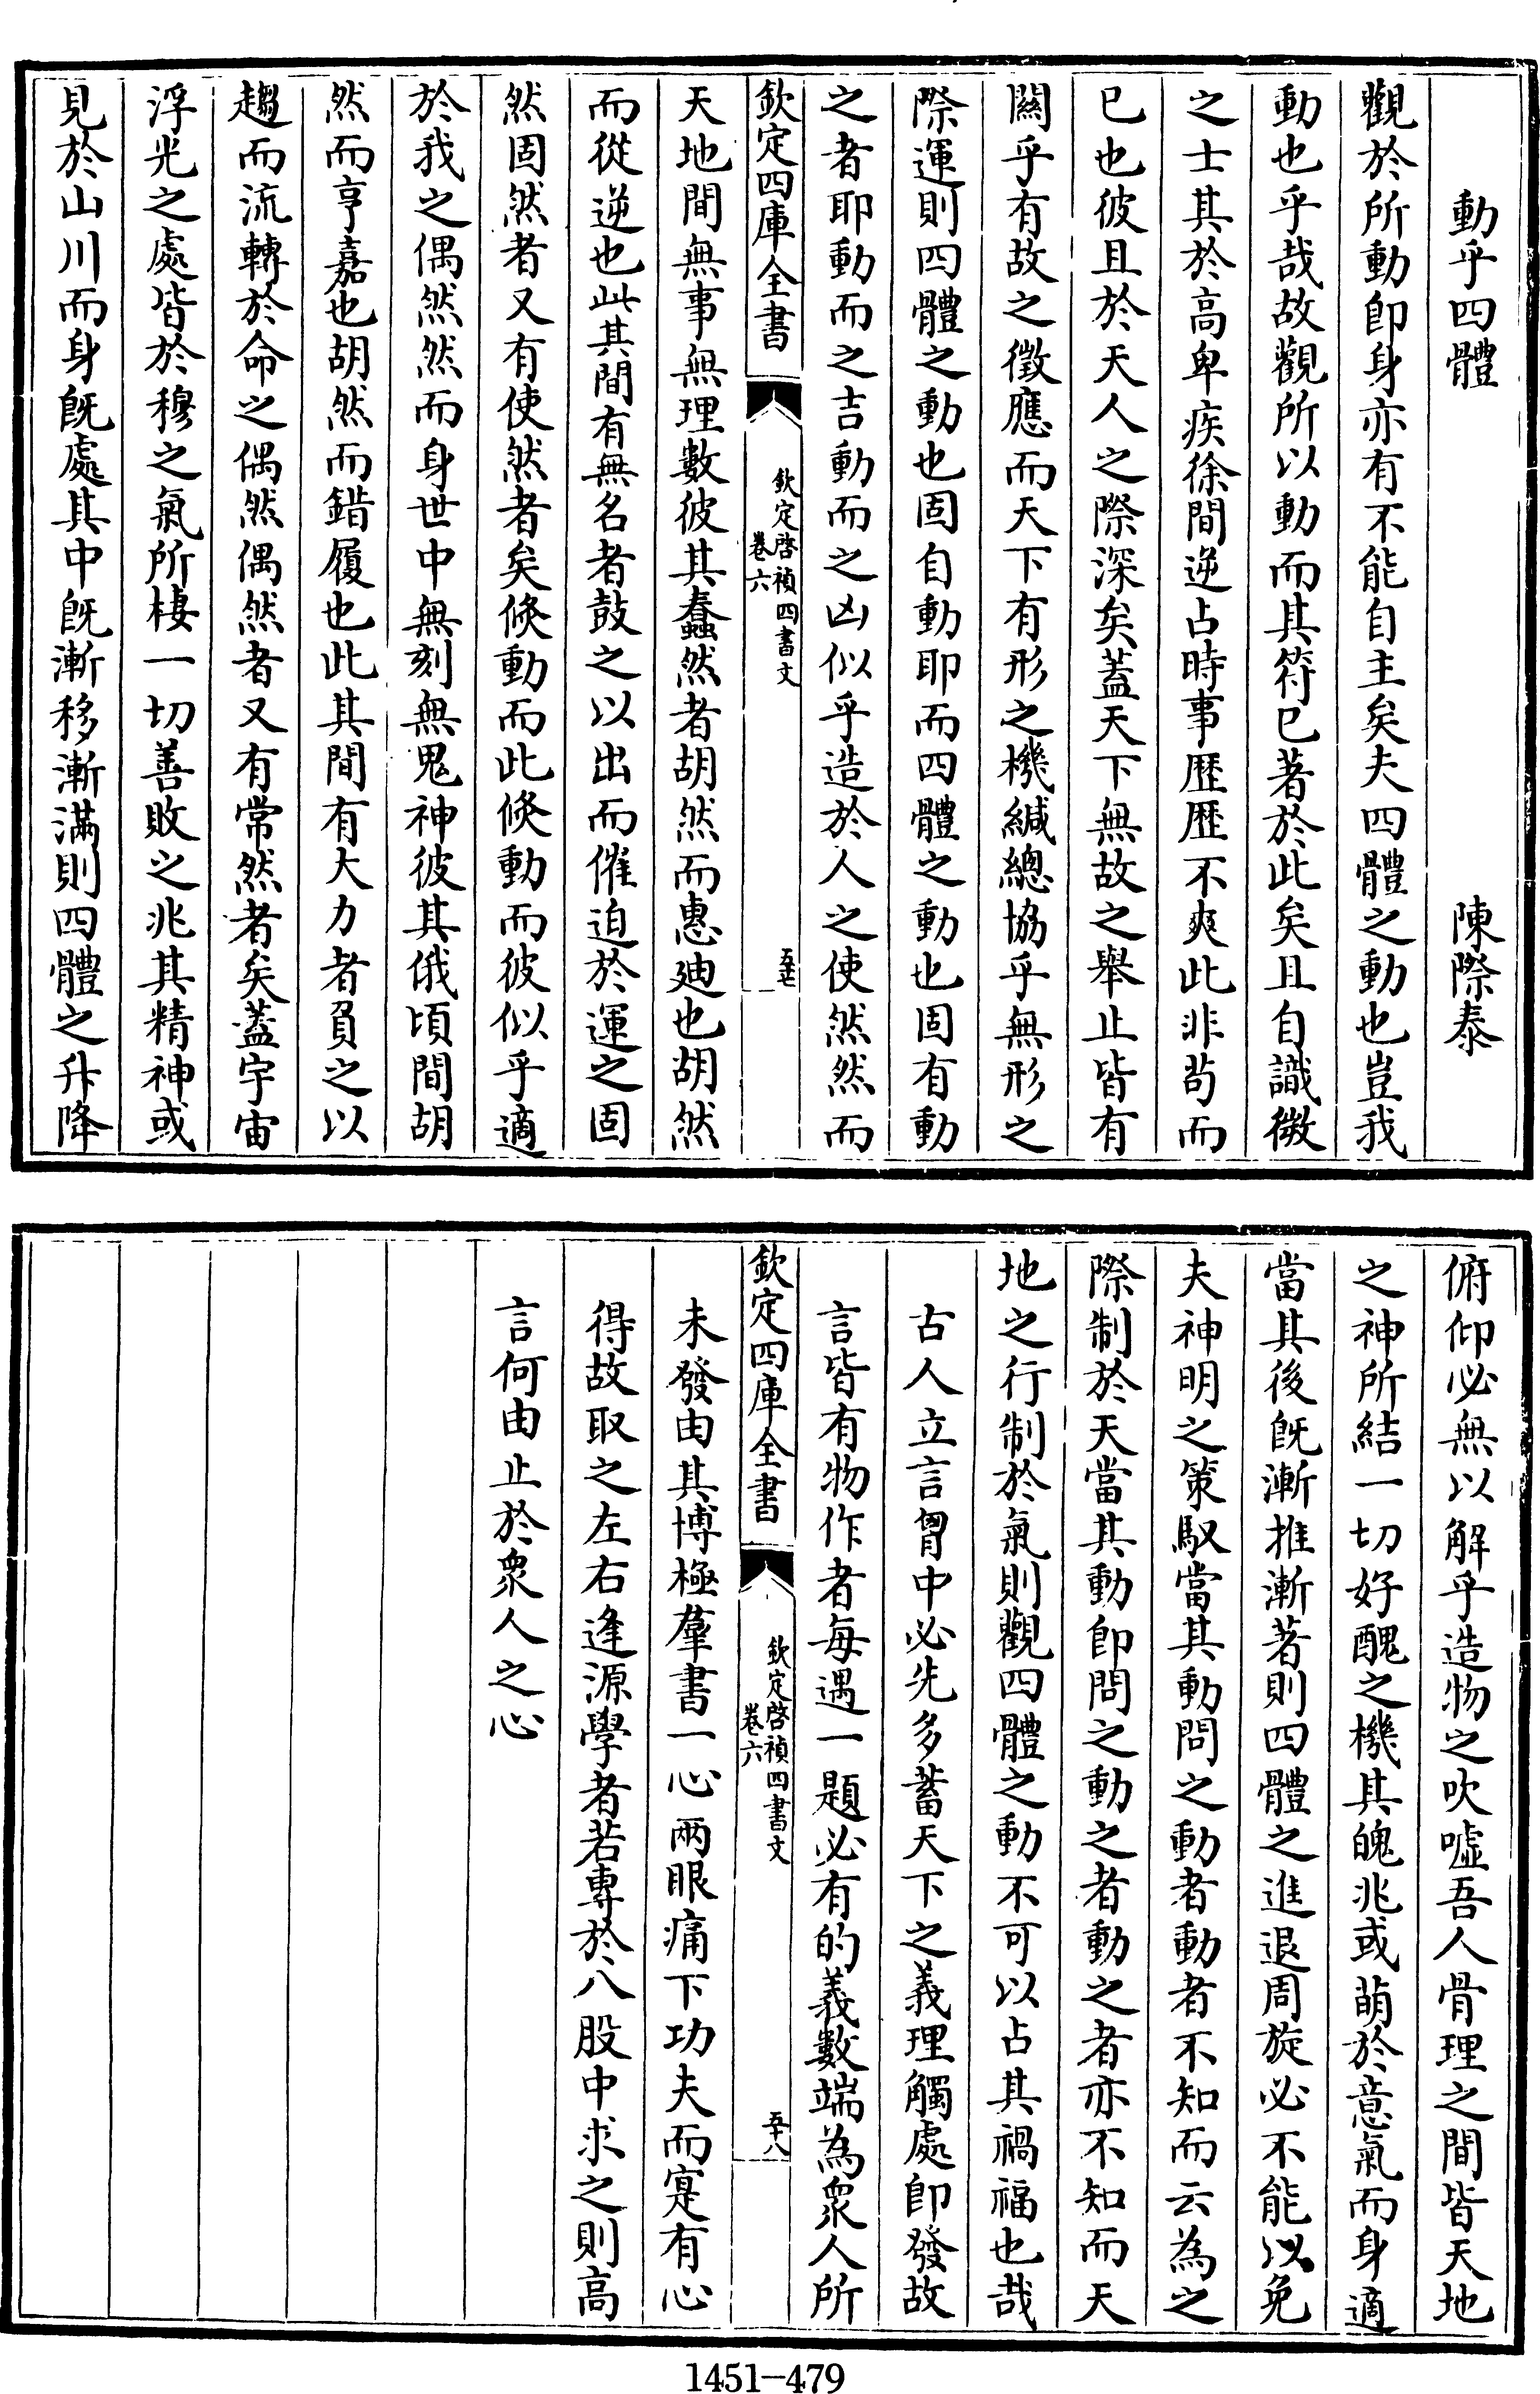 動乎四體　陳際泰
觀於所動卽身亦有不能自主矣夫四體之動也豈我
動也乎哉故觀所以動而其符已著於此矣且自識微
之士其於高卑疾徐間逆占時事歷歷不爽此非苟而
已也彼且於天人之際深矣蓋天下無故之舉止皆有
關乎有故之徵應而天下有形之機緘總協乎無形之
際運則四體之動也固自動耶而四體之動也固有動
之者耶動而之吉動而之凶似乎造於人之使然然而
欽定四庫全書
欽定啓禎四書文
卷六
五十七
天地間無事無理數彼其蠢然者胡然而惠廸也胡然
而從逆也此其間有無名者鼓之以出而催迫於運之固
然固然者又有使然者矣倏動而此倏動而彼似乎適
於我之偶然然而身世中無刻無鬼神彼其俄頃間胡
然而亨嘉也胡然而錯履也此其間有大力者負之以
趨而流轉於命之偶然偶然者又有常然者矣蓋宇宙
浮光之處皆於穆之氣所棲一切善敗之兆其精神或
見於山川而身旣處其中旣漸移漸滿則四體之升降
俯仰必無以解乎造物之吹噓吾人骨理之間皆天地
之神所結一切好醜之機其魄兆或萌於意氣而身適
當其後旣漸推漸著則四體之進退周旋必不能以免
夫神明之策馭當其動問之動者動者不知而云為之
際制於天當其動卽問之動之者動之者亦不知而天
地之行制於氣則觀四體之動不可以占其禍福也哉
古人立言胷中必先多蓄天下之義理觸處卽發故
言皆有物作者每遇一題必有的義數端為衆人所
欽定四庫全書
欽定啓禎四書文
卷六
五十八
未發由其博極羣書一心兩眼痛下功夫而寔有心
得故取之左右逢源學者若專於八股中求之則高
言何由止於衆人之心
1451-479